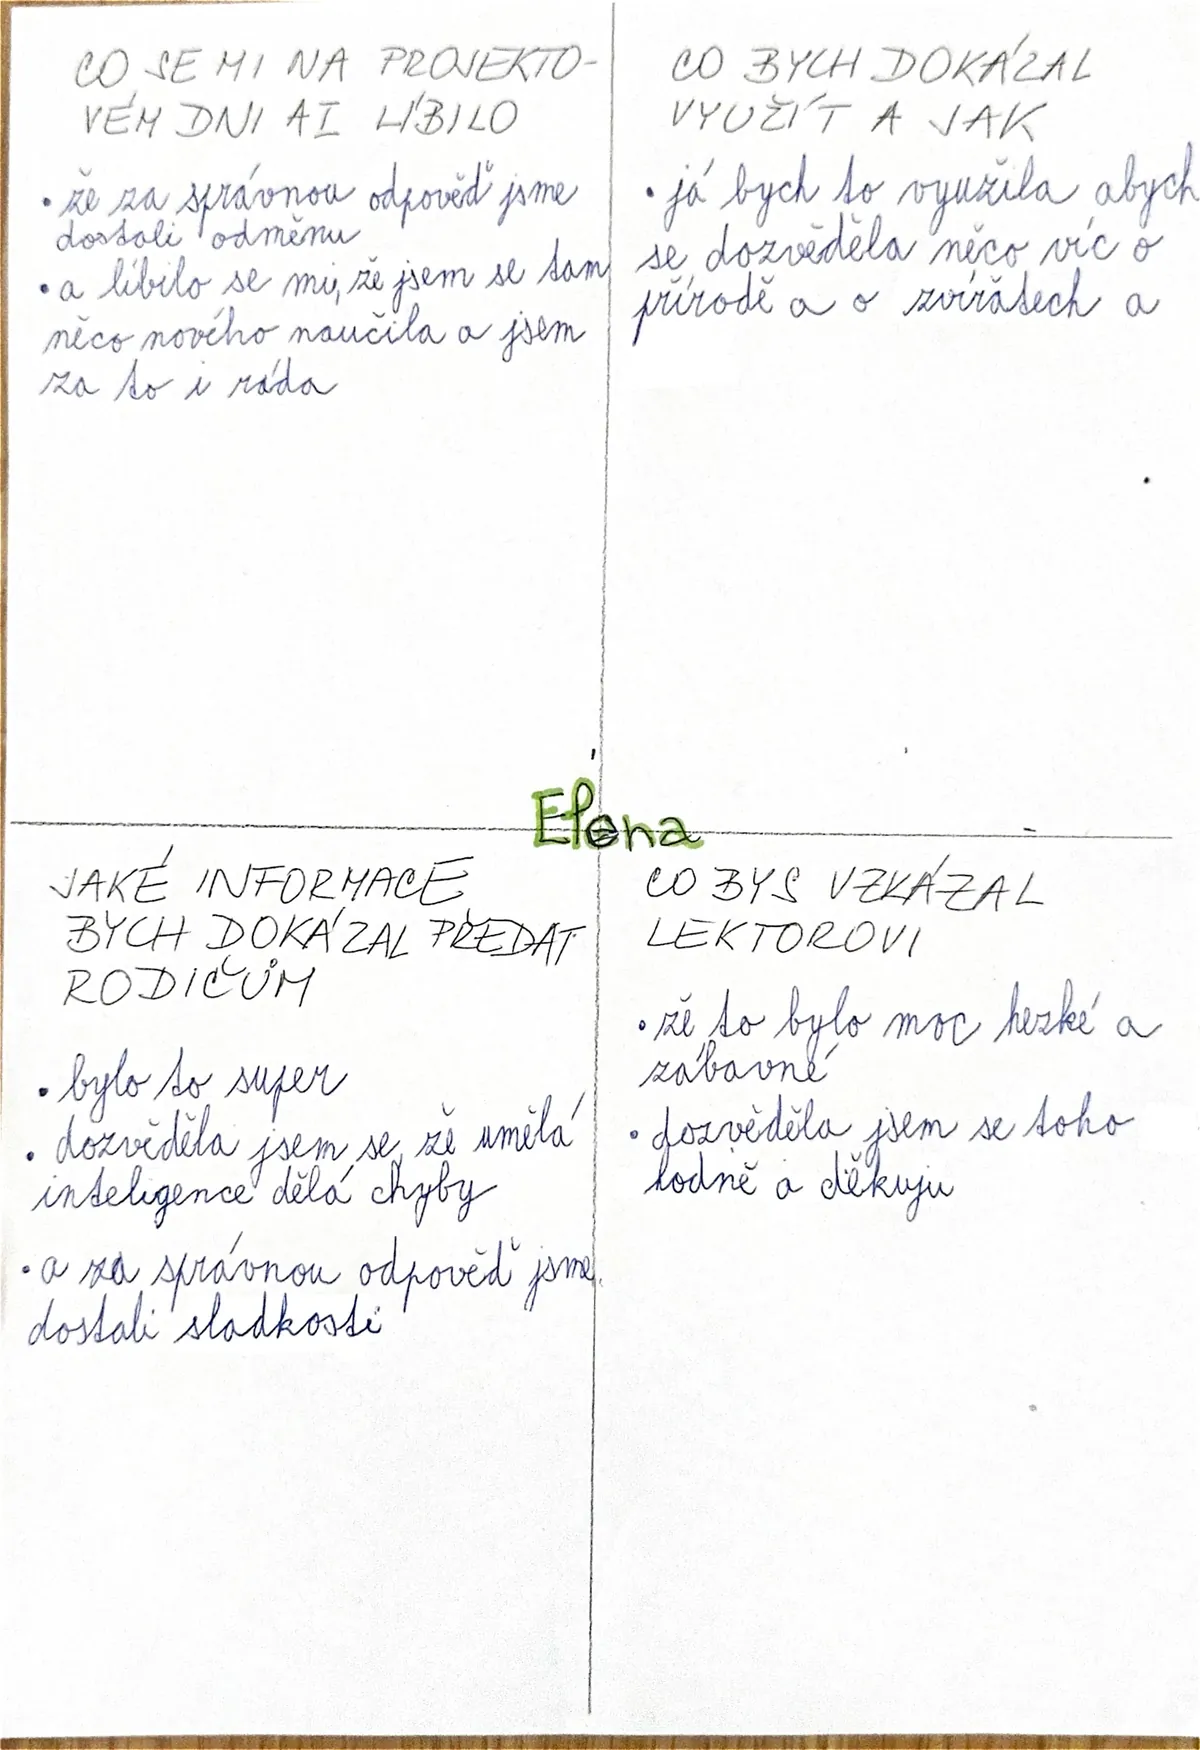 CO SE MI NA PROJEKTO-
VÉM DNI AI LÍBILO
• že za správnou odpověď jsme
dostali odměnu
• a líbilo se mi, že jsem se tam
něco nového naučila a jsem
za to i ráda
CO BYCH DOKÁZAL
VYUŽÍT A JAK
• já bych to využila abych
se dozvěděla něco víc o
přírodě a o zvířatech a
Elena
JAKÉ INFORMACE
BYCH DOKÁZAL PŘEDAT
RODIČŮM
• bylo to super
• dozvěděla jsem se, že umělá
inteligence dělá chyby
• a za správnou odpověď jsme
dostali sladkosti
CO BYS VZKÁZAL
LEKTOROVI
• že to bylo moc hezké a
zábavné
• dozvěděla jsem se toho
hodně a děkuju